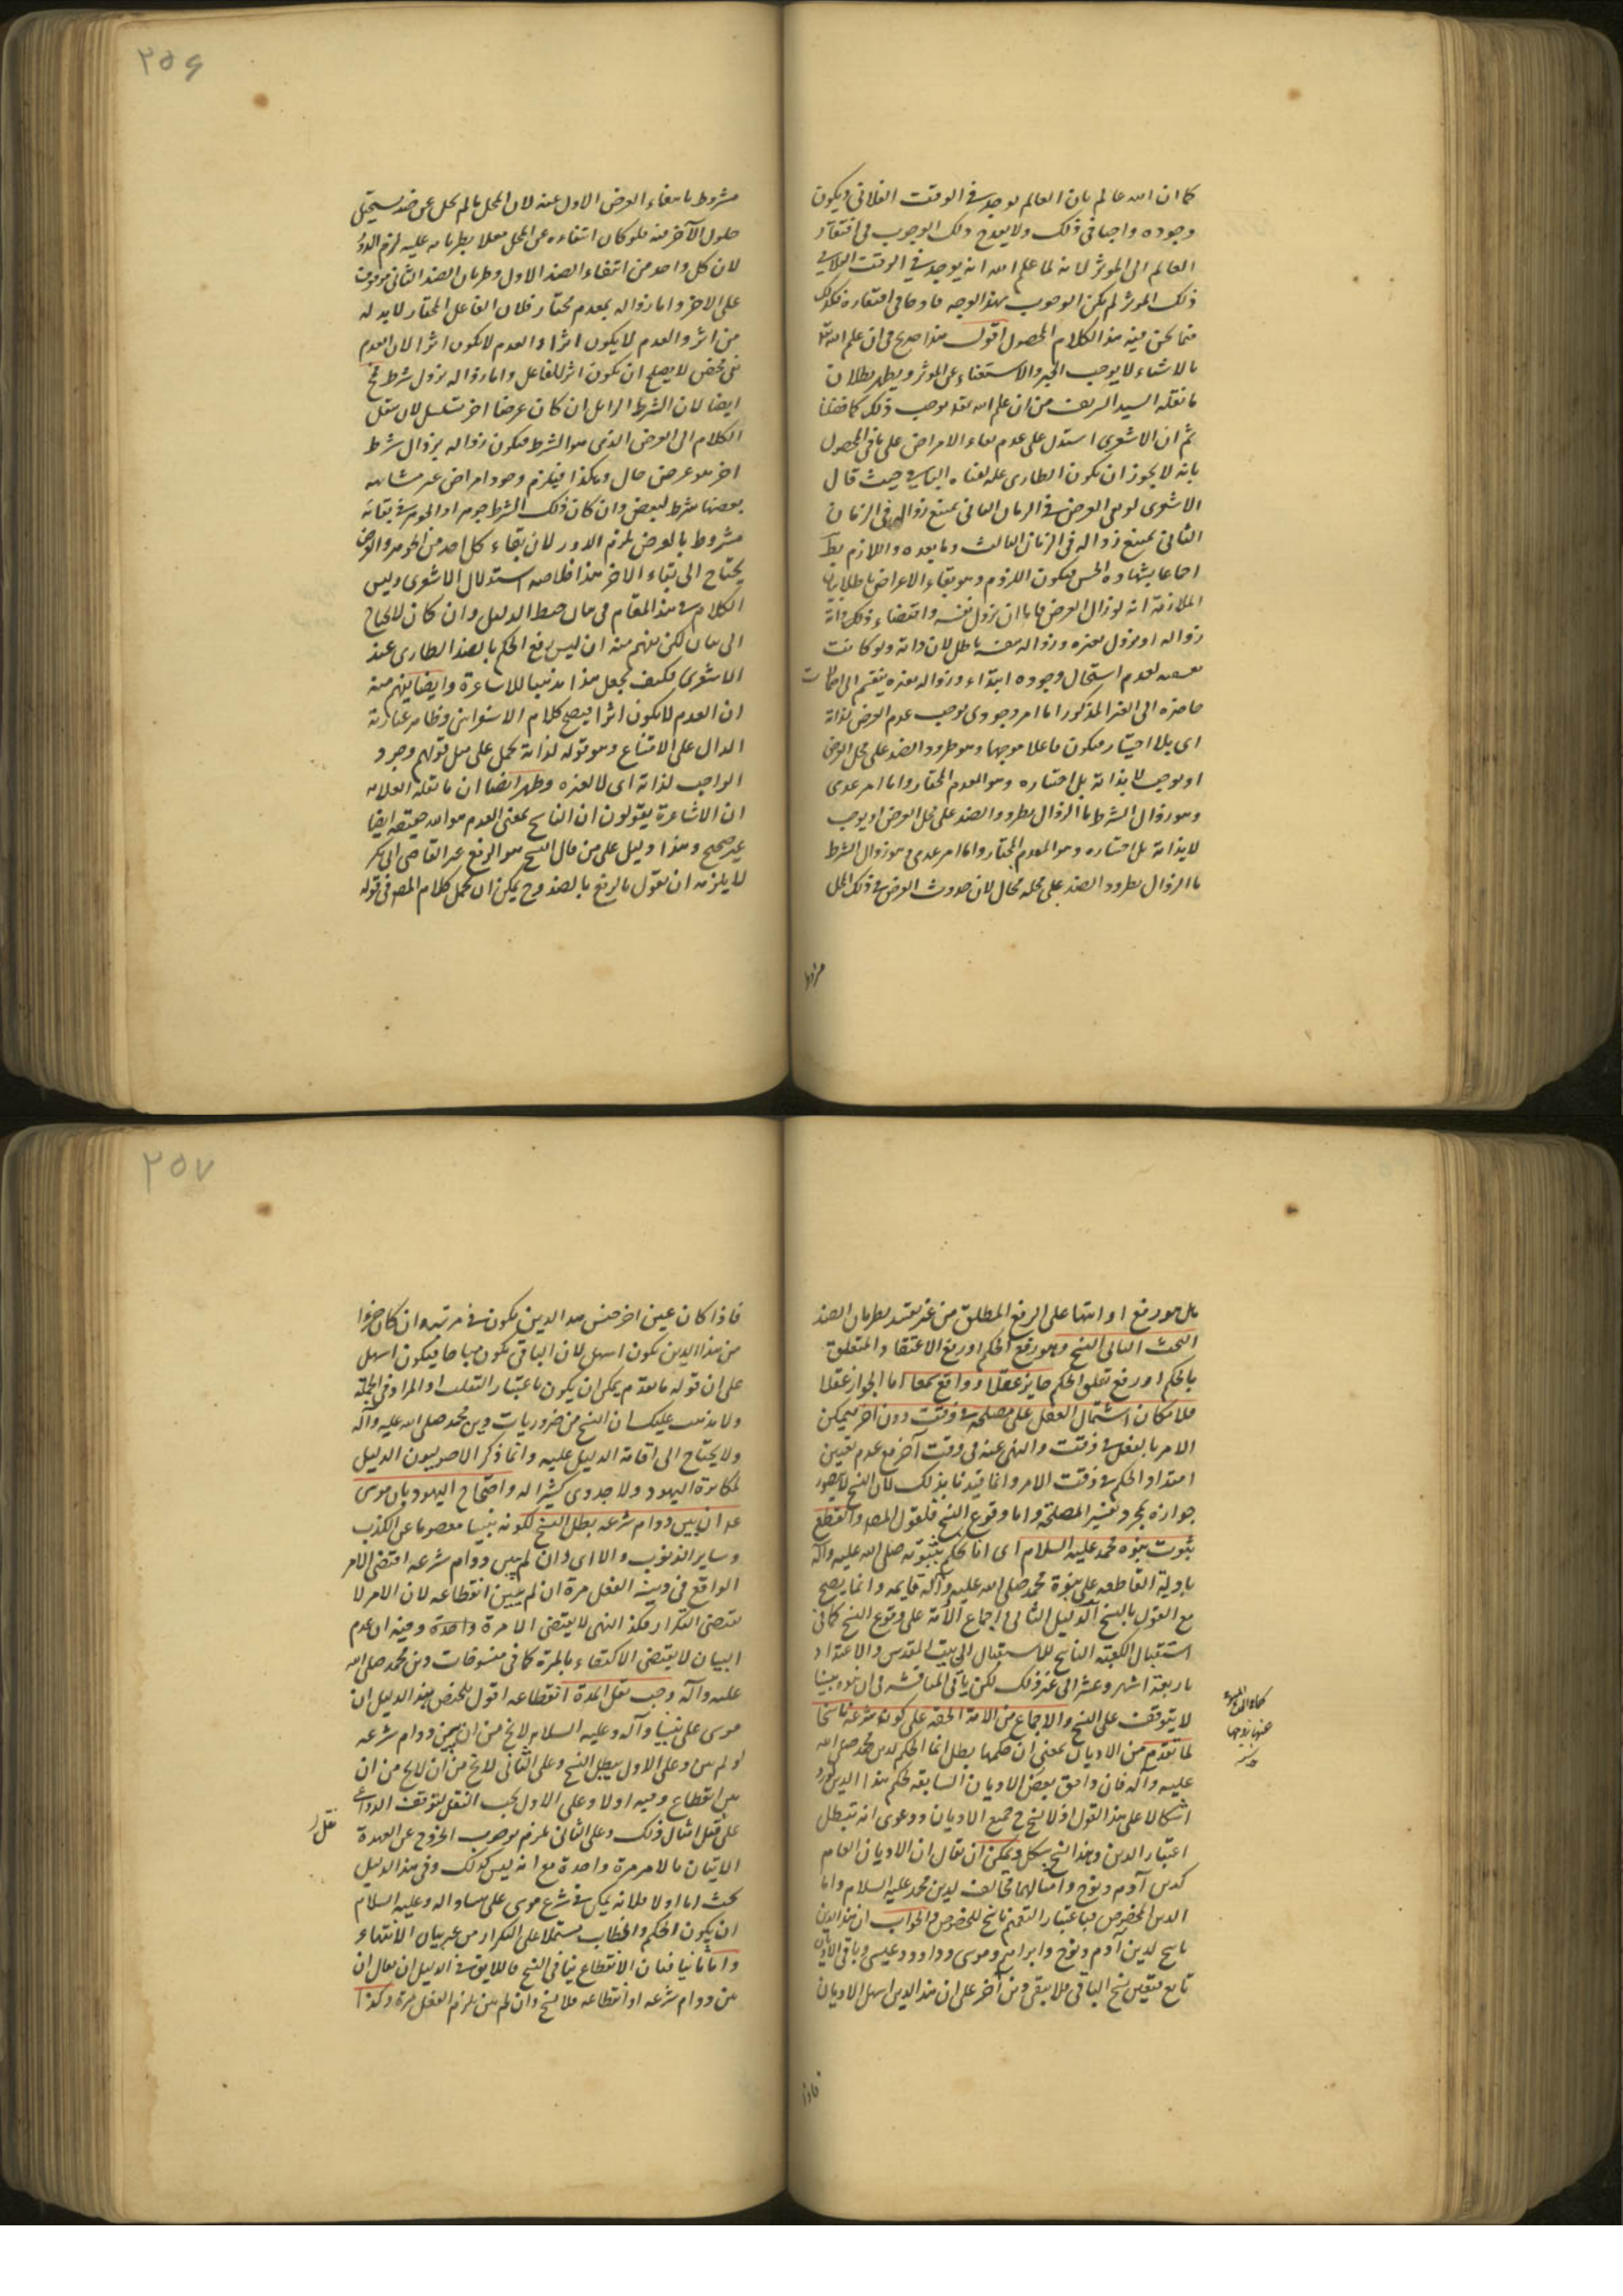 كما ان الله عالم بان العالم يوجد فى الوقت الفلانى ويكون
وجوده واجبا فى ذلك ولا يقدح ذلك الوجوب فى افتقار
العالم الى الموثر لانه لما علم الله انه يوجد فى الوقت الفلانى
ذلك الموثر لم يكن الوجوب بهذا الوجه قادحا فى افتقاره فكذلك
فيما نحن فيه هذا كلام المحصول اقول هذا صريح فى ان علم الله تعا
بالاشياء لا يوجب الجبر والاستغناء عن الموثر ويظهر بطلان
ما نقله السيد الشريف من ان علم الله تعا يوجب ذلك كما فصلنا
ثم ان الاشعرى استدل على عدم بقاء الاعراض على ما فى المحصول
بانه لا يجوز ان يكون الطارى علة لفناء الباقى حيث قال
الاشعرى لو بقى العرض فى الزمان الثانى يمتنع زواله فى الزمان
الثانى يمتنع زواله فى الزمان الثالث وما بعده واللازم بط
اجماعا بشهادة الحس فيكون الملزوم وهو بقاء الاعراض باطلا بيان
الملازمة انه لو زال العرض فاما ان يزول بنفسه واقتضاء ذلك ذاته
زواله او يزول بغيره وزواله بنفسه باطل لان ذاته ولو كانت
مقتضية لعدم استحال وجوده ابتداء وزواله بغيره ينقسم الى احتمالات
حاصره الى الغير المذكور اما امر وجودى يوجب عدم العرض لذاته
اى بلا اختيار فيكون فاعلا موجبا وهو طرود الضد على محل العرض
او يوجب لا بذاته بل اختياره وهو المعدم المختار واما امر عدمى
وهو زوال الشرط بالزوال بطرود الضد على محل العرض او يوجب
لا بذاته بل اختياره وهو المعدم المختار واما امر عدمى وهو زوال الشرط
بالزوال بطرود الضد على محله محال لان حدوث العرض فى ذلك المحل
٢٥٦
مشروط بانتفاء العرض الاول عنه لان المحل ما لم يخل عن ضد يستحيل
حلول الآخر فيه فلو كان انتفاءه عن المحل معللا بطريانه عليه لزم الدور
لان كل واحد من انتفاء الضد الاول وطريان الضد الثانى موقوف
على الاخر واما زواله بمعدم مختار فلان الفاعل المختار لابد له
من اثر والعدم لا يكون اثرا والعدم لا يكون اثرا لان العدم
نفى محض لا يصلح ان يكون اثر للفاعل واما زواله بزوال شرط فح
ايضا لان الشرط الزائل ان كان عرضا اخر تسلسل لان ننقل
الكلام الى العرض الذى هو الشرط فيكون زواله بزوال شرط
اخر هو عرض حال وهكذا فيلزم وجود اعراض غير متناهيه
بعضها شرط لبعض وان كان ذلك الشرط جوهرا والجوهر فى بقائه
مشروط بالعرض لزم الدور لان بقاء كل احد من الجوهر والعرض
يحتاج الى بقاء الاخر هذا خلاصة استدلال الاشعرى وليس
الكلام فى هذا المقام فى بيان ضبط الدليل وان كان لا يحتاج
الى بيان لكن يفهم منه ان ليس رفع الحكم بالضد الطارى عند
الاشعرى فكيف يجعل هذا مذهبا للاشاعرة وايضا يفهم منه
ان العدم لا يكون اثرا فيصح كلام الاسفراينى وظاهر عبارته
الدال على الامتناع وهو قوله لذاته يحمل على مثل قولهم وجود
الواجب لذاته اى لا لغيره وظهر ايضا ان ما نقله العلامه
ان الاشاعرة يقولون ان الناسخ بمعنى العدم هو الله حقيقة ايضا
غير صحيح وهذا دليل على من قال النسخ هو الرفع غير القاضى ابى بكر
لا يلزمه ان يقول بالرفع بالضد وح يمكن ان يحمل كلام المصه فى قوله
بل هو رفع او انتها على الرفع المطلق من غير تقيد بطريان الضد
البحث الثانى النسخ وهو رفع الحكم او رفع الاعتقاد المتعلق
بالحكم او رفع تعلق الحكم جايز عقلا وواقع سمعا اما الجواز عقلا
فلامكان اشتمال الفعل على مصلحة فى وقت دون اخر فيمكن
الامر بالفعل فى وقت والنهى عنه فى وقت آخر مع عدم تعيين
امتداد الحكم فى وقت الامر وانما قيدنا بذلك لان النسخ لا يتصور
جوازه بمجرد تغيير المصلحة واما وقوع النسخ فلقول المصه والقطع
بثبوت نبوه محمد عليه السلام اى انا نحكم بنبوته صلى الله عليه وآله
بادلة القاطعه على نبوة محمد صلى الله عليه وآله قايمه وانما يصح
مع القول بالنسخ الدليل الثانى اجماع الأمة على وقوع النسخ كما فى
استقبال الكعبة الناسخ للاستقبال الى بيت المقدس والاعتداد
باربعة اشهر وعشر الى غير ذلك لكن ياتى المناقشه فى ان نبوة نبينا
لا يتوقف على النسخ والاجماع من الامة الحقه على كون شرعه ناسخا
لما تقدم من الاديان بمعنى ان حكمها بطل انما الحكم لدين محمد صلى الله
عليه وآله فان وافق بعض الاديان السابقة لحكم هذا الدين يورد
اشكالا على هذا القول اذ لا نسخ فى جميع الاديان ودعوى انه تبطل
اعتبار الدين وهذا النسخ بشكل ويمكن ان يقال ان الاديان العام
كدين آدم ونوح وامثالهما مخالف لدين محمد عليه السلام واما
الدين المخصوص فباعتبار التعميم ناسخ للخصوص والجواب ان هذا الدين
ناسخ لدين آدم ونوح وابراهيم وموسى وداوود وعيسى وباقى الاديان
تابع فتعين نسخ الباقى فلا يبقى دين آخر على ان هذا الدين اسهل الاديان
فاذا
٢٥٧
فاذا كان عين اخر جنس هذا الدين يكون فى مرتبه ان كان جزءا
من هذا الدين يكون اسهل لان الباقى يكون مباحا فيكون اسهل
على ان قوله ما تقدم يمكن ان يكون باعتبار التغليب او المراد فى الجملة
ولا يذهب عليك ان النسخ من ضروريات دين محمد صلى الله عليه وآله
ولا يحتاج الى اقامة الدليل عليه وانما ذكر الاصوليون الدليل
لمكابرة اليهود ولا جدوى كثيرا له واحتجاج اليهود بان موسى
عه ان بين دوام شرعه بطل النسخ لكونه نبيا معصوما عن الكذب
وساير الذنوب والا اى وان لم يبين دوام شرعه اقتضى الامر
الواقع فى دينه الفعل مرة ان لم يبين انقطاعه لان الامر لا
يقتضى التكرار فكذا النهى لا يقتضى الا مرة واحدة وفيه ان عدم
البيان لا يقتضى الاكتفاء بالمرة كما فى منسوخات دين محمد صلى الله
عليه وآله وجب نقل المدة انقطاعه اقول تلخيص هذا الدليل ان
موسى على نبينا وآله وعليه السلام لا يخ من ان يبين دوام شرعه
او لم يبين وعلى الاول يبطل النسخ وعلى الثانى لا يخ من ان لا يخ من ان
يبين انقطاع دينه اولا وعلى الاول يجب النقل لتوقف الدواعى
على نقل امثال ذلك وعلى الثانى يلزم بوجوب الخروج عن العهدة
نقل
الاتيان بالامر مرة واحدة مع انه ليس كذلك وفى هذا الدليل
بحث اما اولا فلانه يمكن فى شرع موسى على نبينا واله وعليه السلام
ان يكون الحكم والخطاب مشتملا على التكرار من غير بيان الانتهاء
واما ثانيا فبان الانقطاع ينافى النسخ فاللايق فى الدليل ان يقال ان
بين دوام شرعه او انقطاعه فلا نسخ وان لم يبين يلزم الفعل مرة وكذا